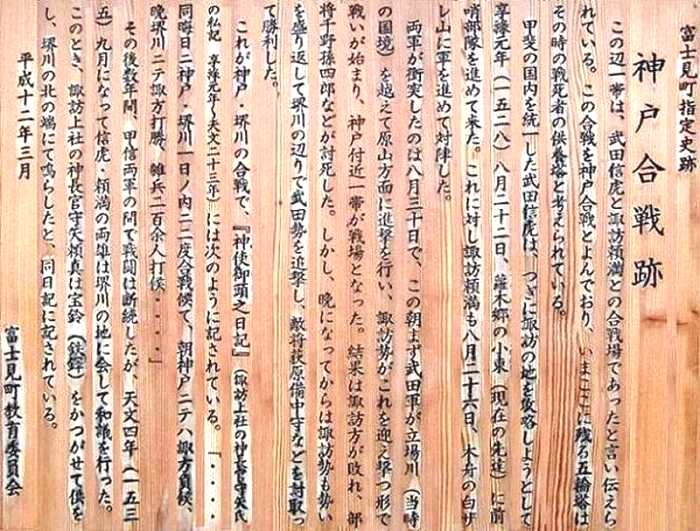 富士見町指定史跡
神戸合戦跡
この辺一帯は、武田信虎と諏訪頼満との合戦場であったと言い伝えら
れている。この合戦を神戸合戦とよんでおり、いまここに残る五輪塔は
その時の戦死者の供養塔と考えられている。
甲斐の国内を統一した武田信虎は、つぎに諏訪の地を攻略しようとして
享禄元年(一五二八)八月二十二日、蘿木郷の小東(現在の先達)に前
哨部隊を進めて来た。これに対し諏訪頼満も八月二十六日、木舟の白ザ
レ山に軍を進めて対陣した。
両軍が衝突したのは八月三十日で、この朝まず武田軍が立場川(当時
の国境)を越えて原山方面に進撃を行い、諏訪勢がこれを迎え撃つ形で
戦いが始まり、神戸付近一帯が戦場となった。結果は諏訪方が敗れ、部
将千野孫四郎などが討死した。しかし、晩になってからは諏訪勢も勢い
を盛り返して堺川の辺りで武田勢を追撃し、敵将萩原備中守などを討取っ
て勝利した。
これが神戸・堺川の合戦で、『神使御頭之日記』(諏訪上社の神長官守矢氏
の私記 享禄元年〜天文二十三年)には次のように記されている。「・・・・
同晦日ニ神戸・堺川一日ノ内ニ二度合戦候て、朝神戸ニテハ諏方負候、
晩堺川ニテ諏方打勝、雑兵二百余人打候・・・・」
その後数年間、甲信両軍の間で戦闘は断続したが、天文四年(一五三
五)九月になって信虎・頼満の両雄は堺川の地に会して和議を行った。
このとき、諏訪上社の神長官守矢頼真は宝鈴(鉄鐸)をかつがせて供を
し、堺川の北の端にて鳴らしたと、同日記に記されている。
平成十二年三月
富士見町教育委員会